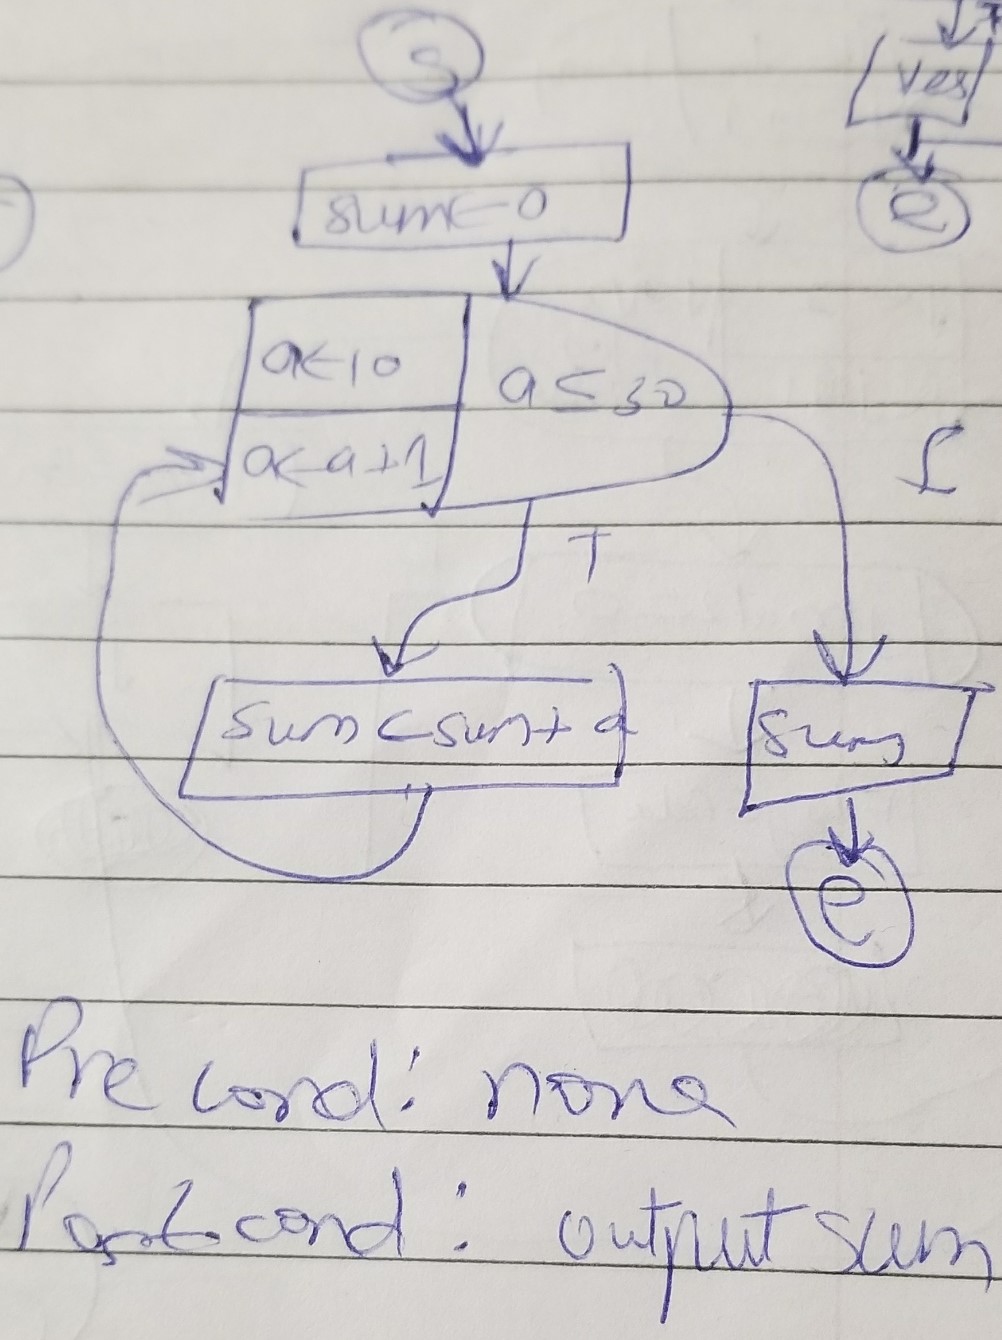 S
Yes
e
sum ← 0
a ← 10
a ≤ 30
a ← a + 1
T
sum ← sum + a
sum
e
Pre cond: none
Post cond: output sum